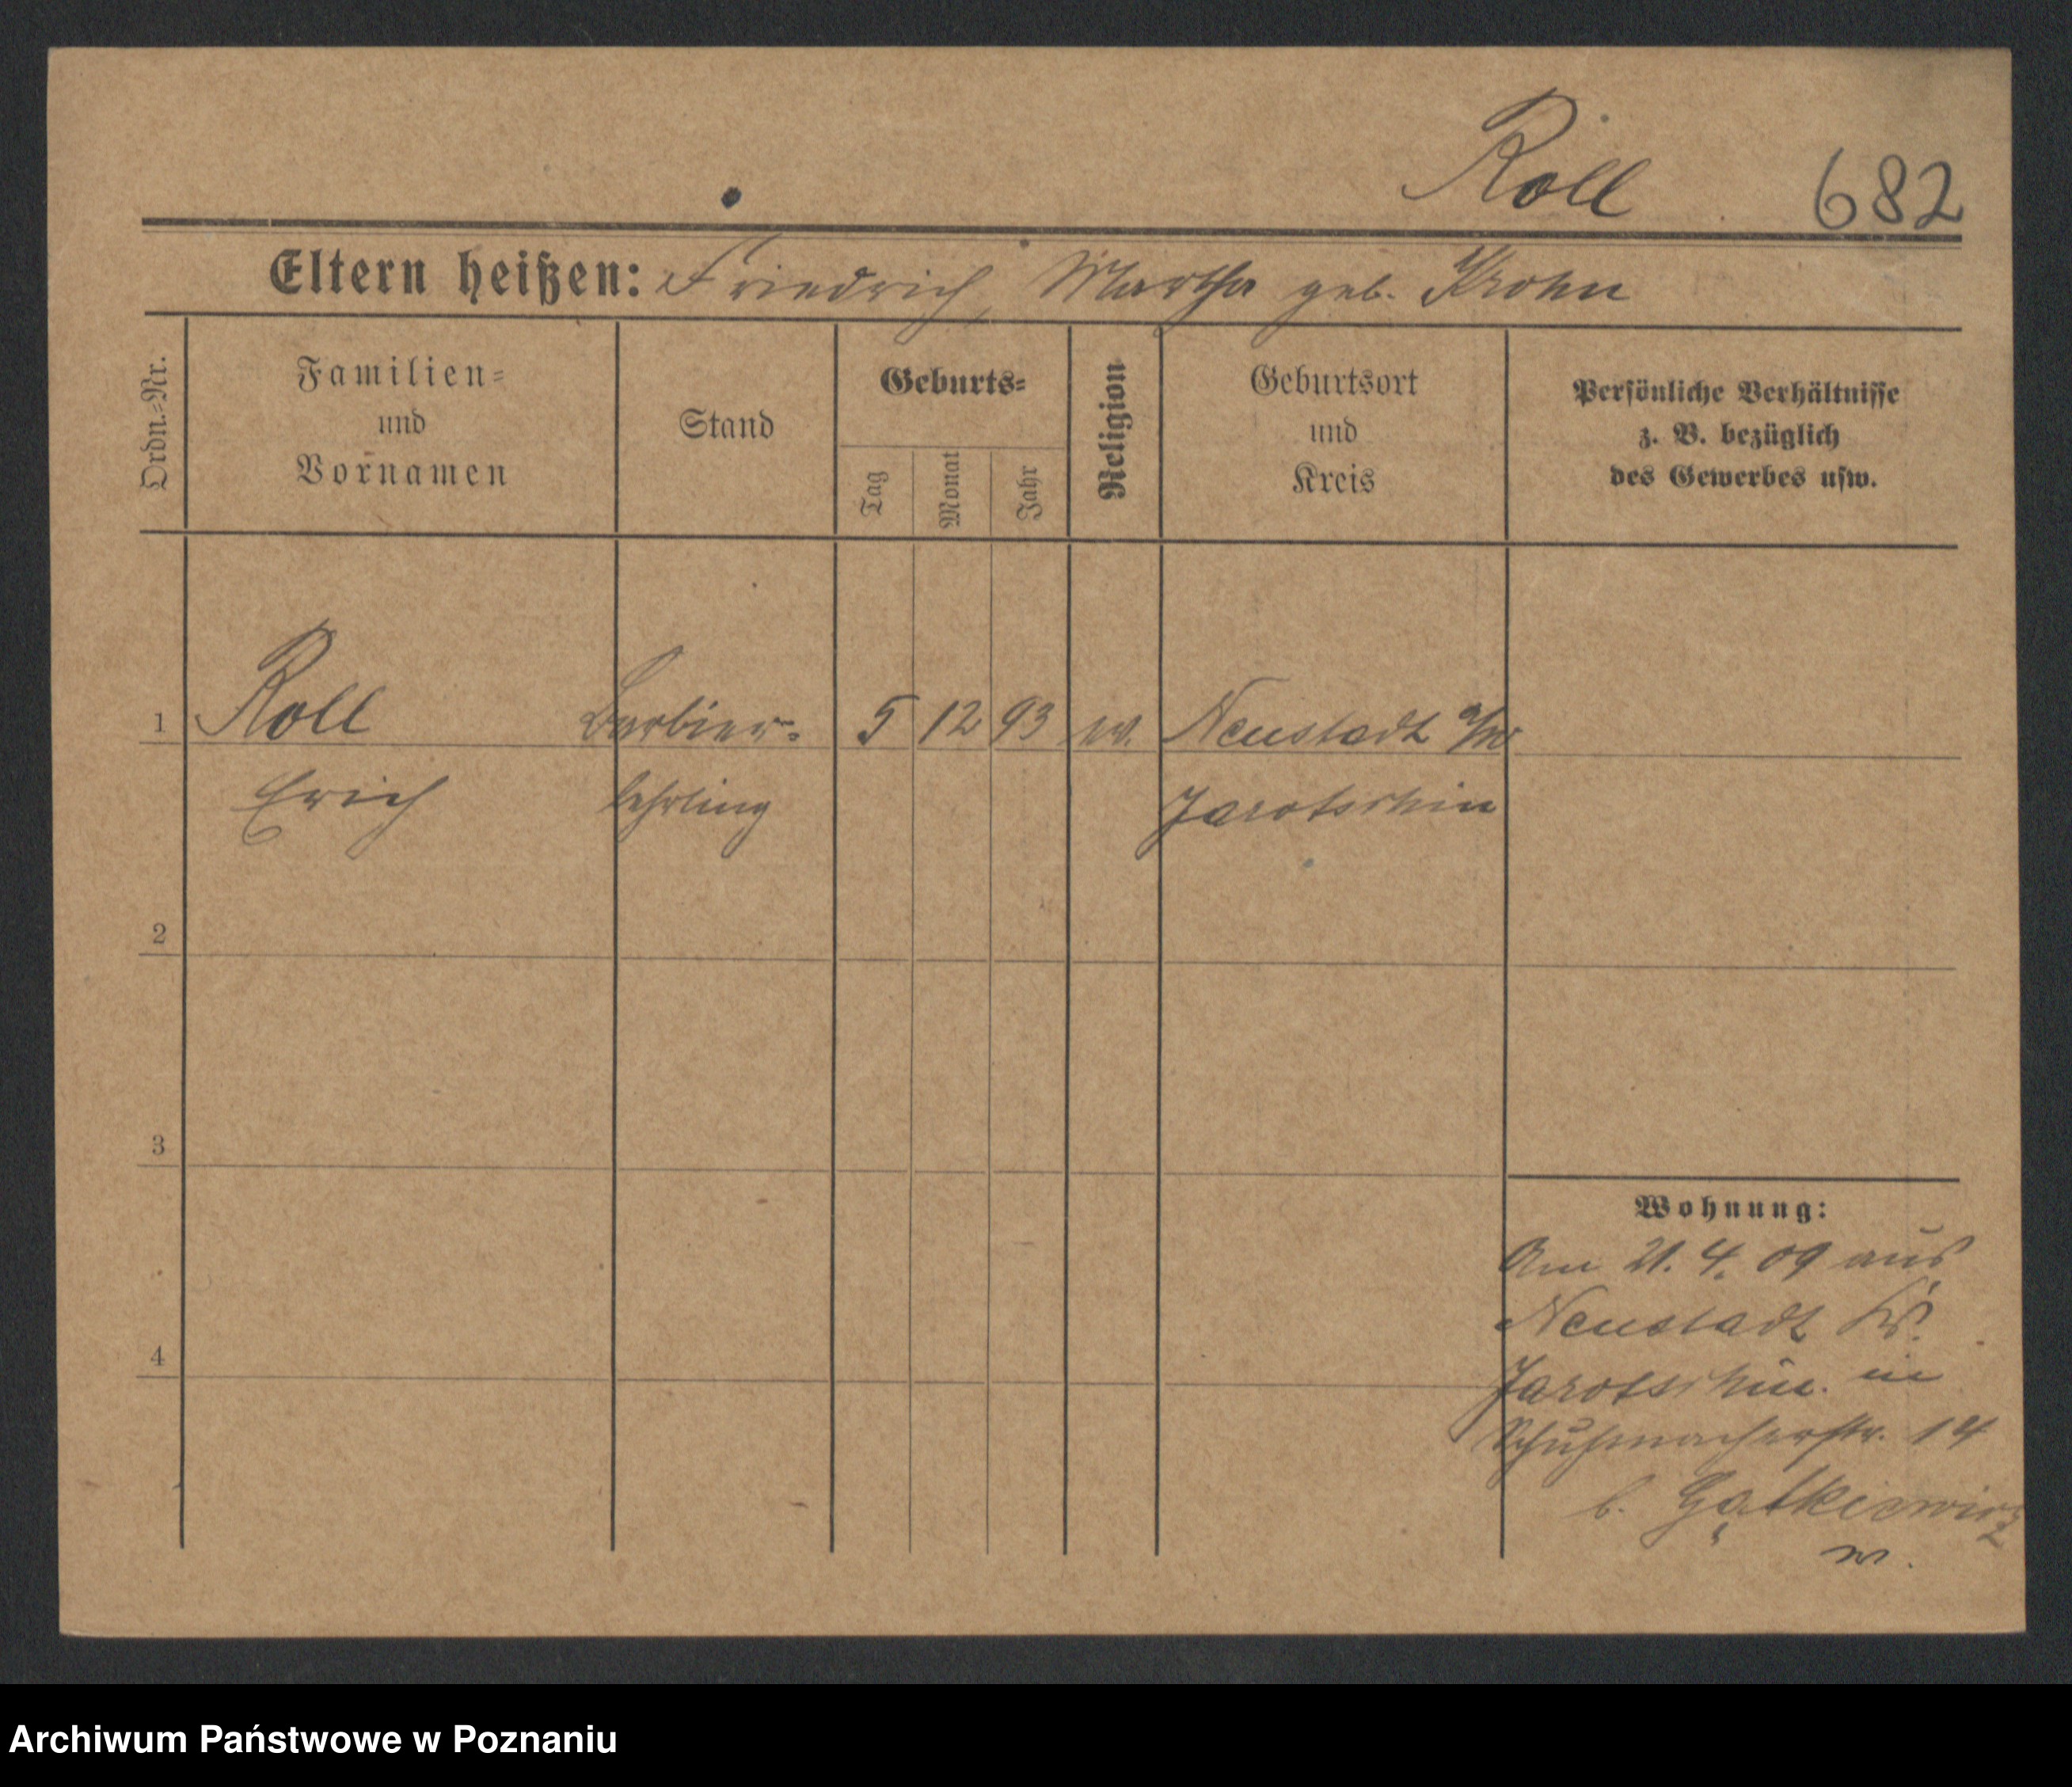 Roll 682
Eltern heißen: Friedrich, Martha geb. Krohn
Ordn.-Nr.
Familien-
und
Vornamen
Stand
Geburts-
Tag
Monat
Jahr
Religion
Geburtsort
und
Kreis
Persönliche Verhältnisse
z. B. bezüglich
des Gewerbes usw.
1 Roll Barbier- 5 12 93 ev. Neustadt a/W
Erich lehrling Jarotschin
2
3
4
Wohnung:
Am 21. 4. 09 aus
Neustadt Kr.
Jarotschin in
Schuhmacherstr. 14
b.
Archiwum Państwowe w Poznaniu